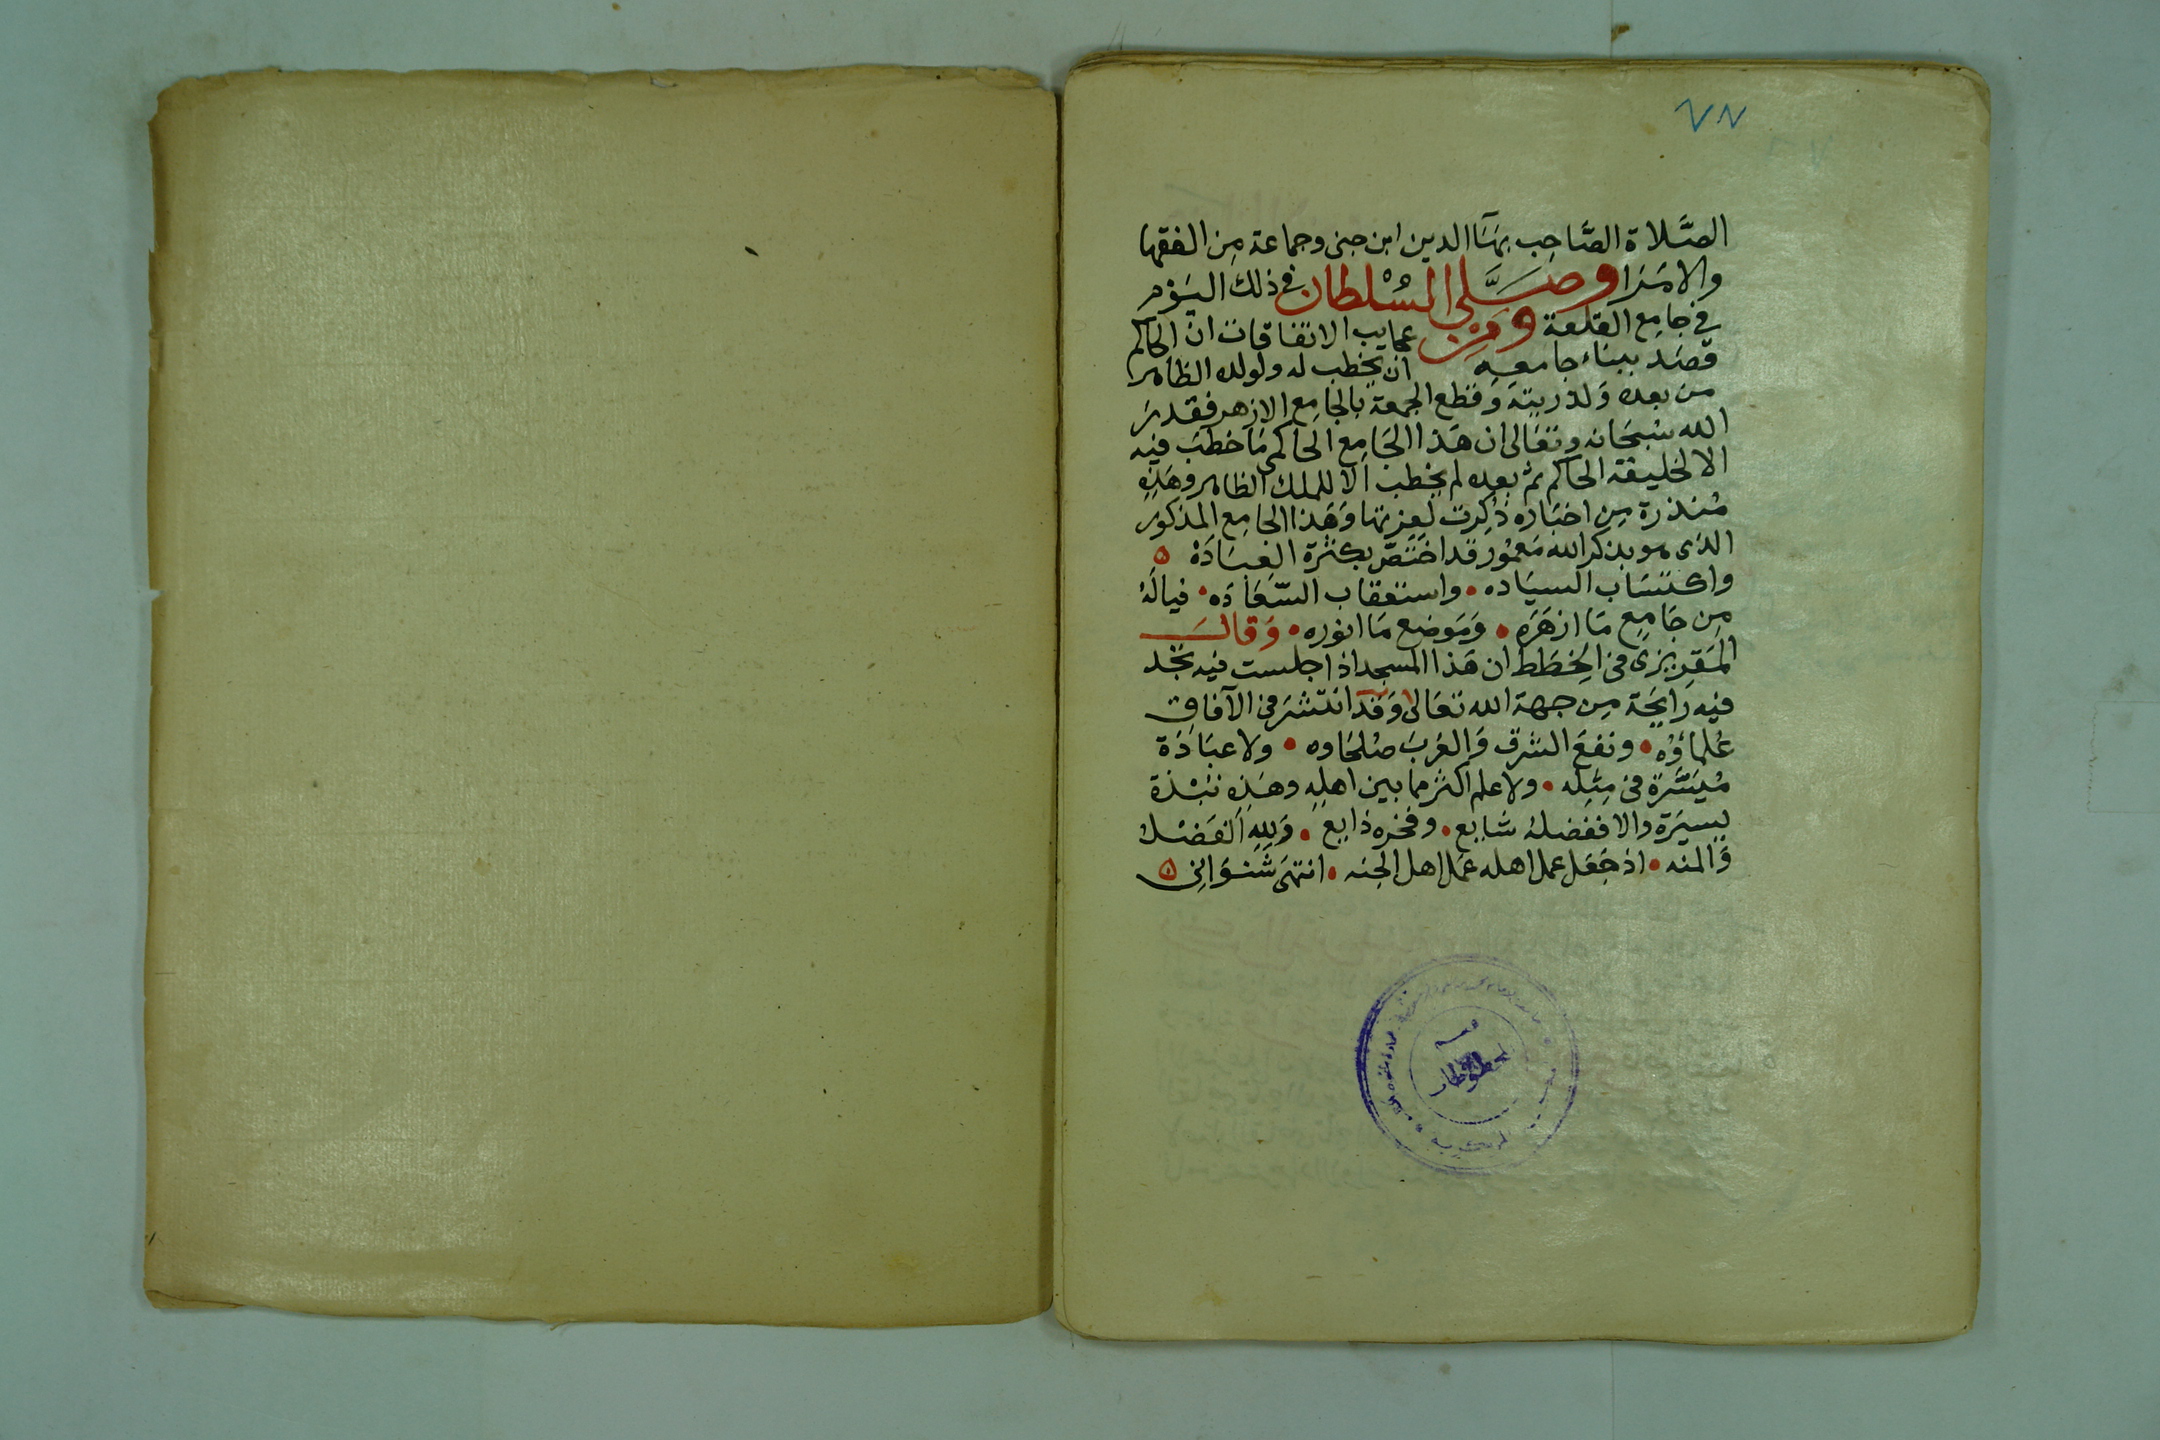 ٧٧
الصَّلاة الصَّاحِب بهَآالدين ابن حنى وجماعة مِن الفقها
والامَرا وصَلَّى السُلطان في ذلك اليَوْم
في جامِع القلعة ومَنِ عجايب الاتفاقات ان الحاكم
قصَد ببناء جامعِهِ ان يخطب له ولولده الظاهر
من بعده وَلذريته وَقطع الجمعة بالجَامِع الازهر فقدرَ
الله سُبحَانه وتعَالى ان هَذا الجَامِع الحاكمى مَا خطبَ فيه
الا لخليفة الحاكم ثم بعده لم يخطب الا للملك الظاهر وهَذِهِ
مُنذرة مِن اخبَاره ذُكِرت لِعِزتها وَهَذا الجامِع المذكور
الذى هو بذكر الله مَعمُور قد اختَصّ بكثرة العِبَادَة ه
واكتسَاب السيَاده • واستعقاب السّعَادَه • فيالهُ
مِن جَامِع مَا ازهَرَه • وَمَوضِع مَا انوره • وَقالَ
المَقرِيزى فى الخِطَط ان هَذا المسجد اذا جلست فيه تجد
فيه رَايحَة مِن جهة الله تعَالى وَقد انتشرَ فى الآفاق
عُلماؤه • ونفعَ الشرق وَالغَربَ صُلحَاوه • ولا عبَادَة
مُيَسَّرة فى مِثلِه • ولا علم اكثر مما بين اهلِهِ وهَذِه نُبْذة
يسيرَة والا ففضله شايع • وفخره ذايع • وَلِلهِ الفَضْل
وَالمنه • اذ جَعَل عمل اهله عَمل اهل الجنه • انتهَى شَنَوَانِى ه
قسم
المخطوطات